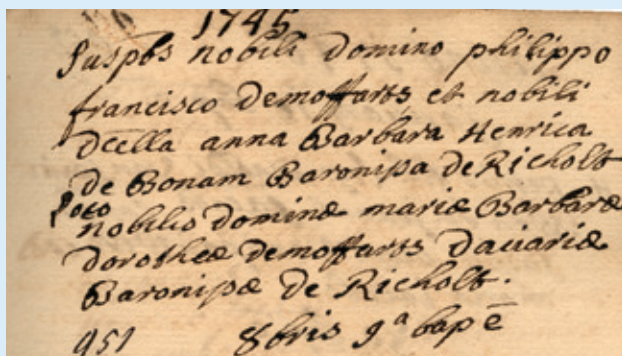 1745
Suspbs nobili domino philippo
francisco demoffarts et nobili
dcella anna Barbara Henrica
de Bonam Baronissa de Richolt
loco
nobilis dominæ mariæ Barbaræ
dorotheæ demoffarts
Baronissæ de Richolt.
951 8bris 9a bap ē